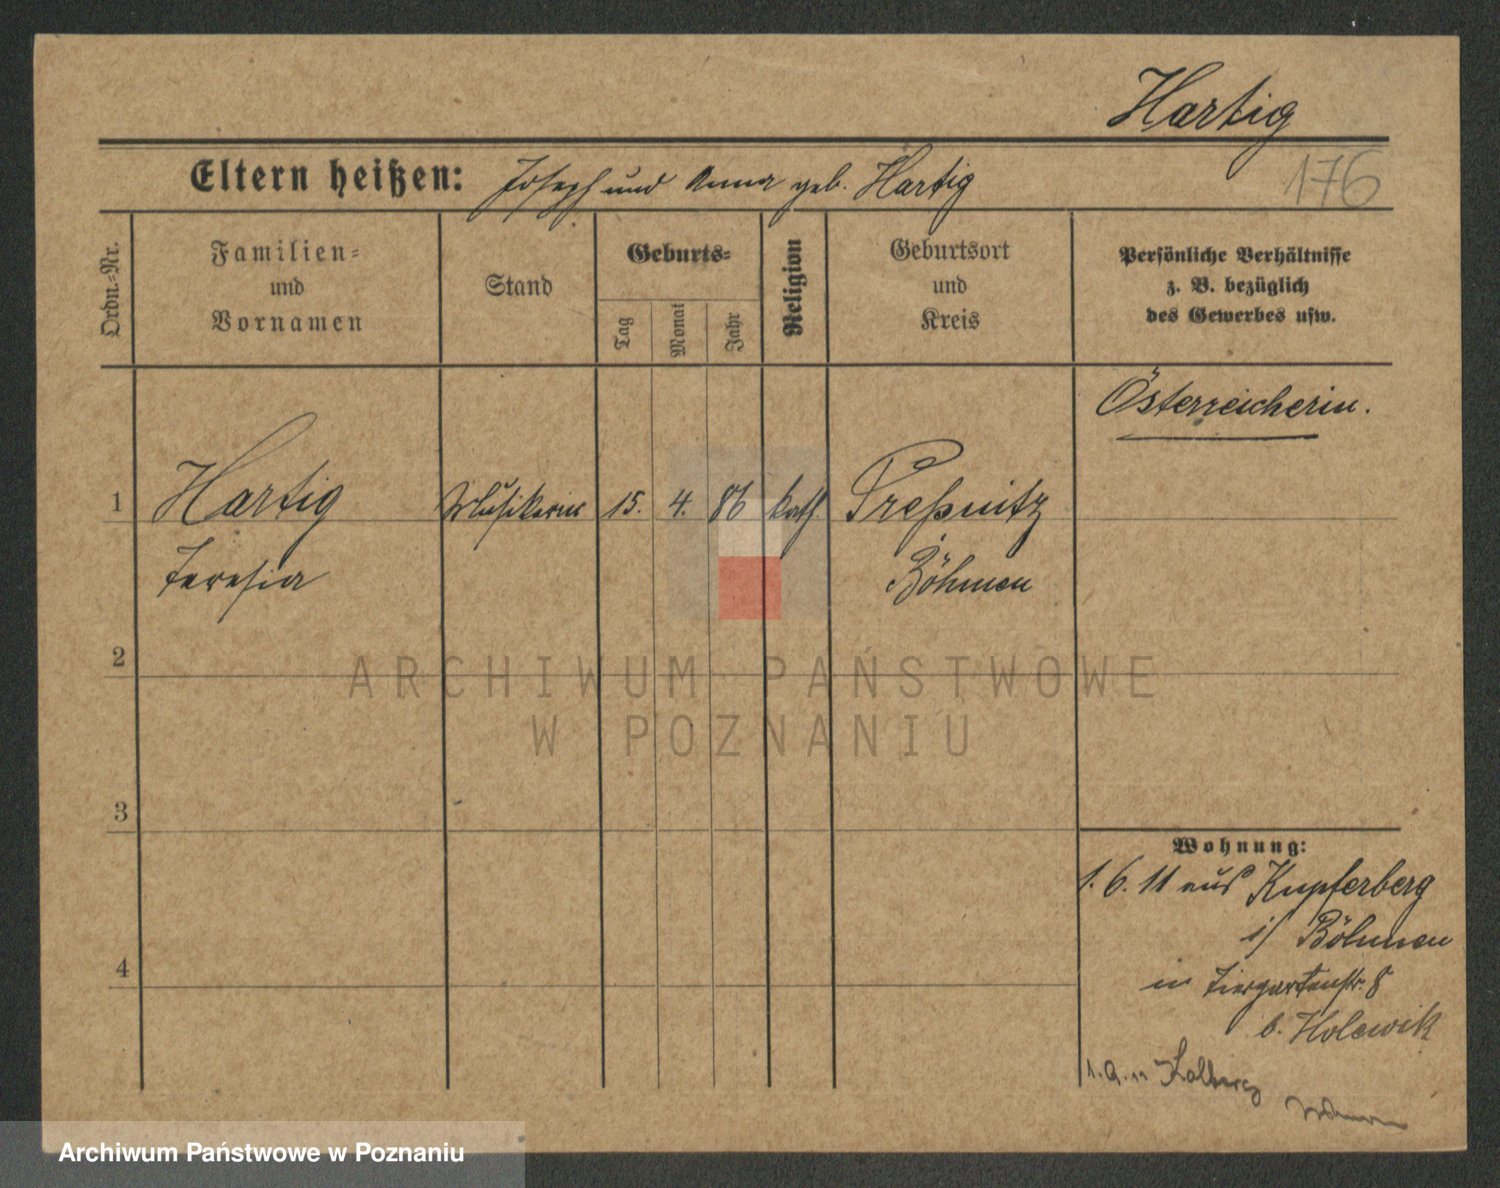 Hartig
176
Eltern heißen: Joseph und Anna geb. Hartig
Ordn.-Nr.
Familien-
und
Vornamen
Stand
Geburts-
Tag
Monat
Jahr
Religion
Geburtsort
und
Kreis
Persönliche Verhältnisse
z. B. bezüglich
des Gewerbes usw.
Österreicherin.
1 Hartig Musikerin 15. 4. 86 kath. Preßnitz
Teresia Böhmen
2
3
4
Wohnung:
1. 6. 11 aus Kupferberg
i/ Böhmen
in Tiergartenstr. 8
b. Holewik
1. 9. 11 Kolberg
ARCHIWUM PAŃSTWOWE
W POZNANIU
Archiwum Państwowe w Poznaniu